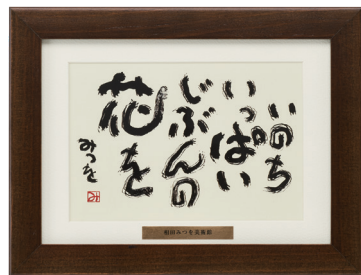 いのち
いっぱい
じぶんの
花を
みつを
み
相田みつを美術館